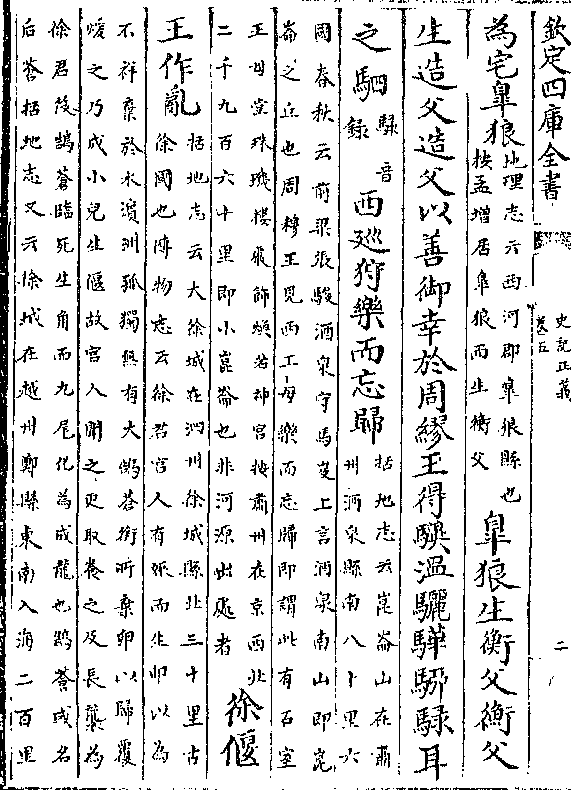 欽定四庫全書
史記正義
卷五
二
為宅臯狼
地理志云西河郡臯狼縣也
按孟增居臯狼而生衡父
臯狼生衡父衡父
生造父造父以善御幸於周繆王得驥溫驪驊騮騄耳
之駟
騄音
錄
西廵狩樂而忘歸
括地志云崑崙山在肅
州酒泉縣南八十里六
國春秋云前梁張駿酒泉守馬岌上言酒泉南山即崑
崙之丘也周穆王見西王母樂而忘歸即謂此有石室
王母堂珠璣樓嚴飾煥若神宫按肅州在京西北
二千九百六十里即小崑崙也非河源出處者
徐偃
王作亂
括地志云大徐城在泗州徐城縣北三十里古
徐國也博物志云徐君宫人有娠而生卵以為
不祥棄於水濱洲孤獨無有大鵠蒼銜所棄卵以歸覆
煖之乃成小兒生偃故宫人聞之更取養之及長襲為
徐君後鵠蒼臨死生角而九尾化為成龍也鵠蒼或名
后蒼括地志又云徐城在越州鄮縣東南入海二百里